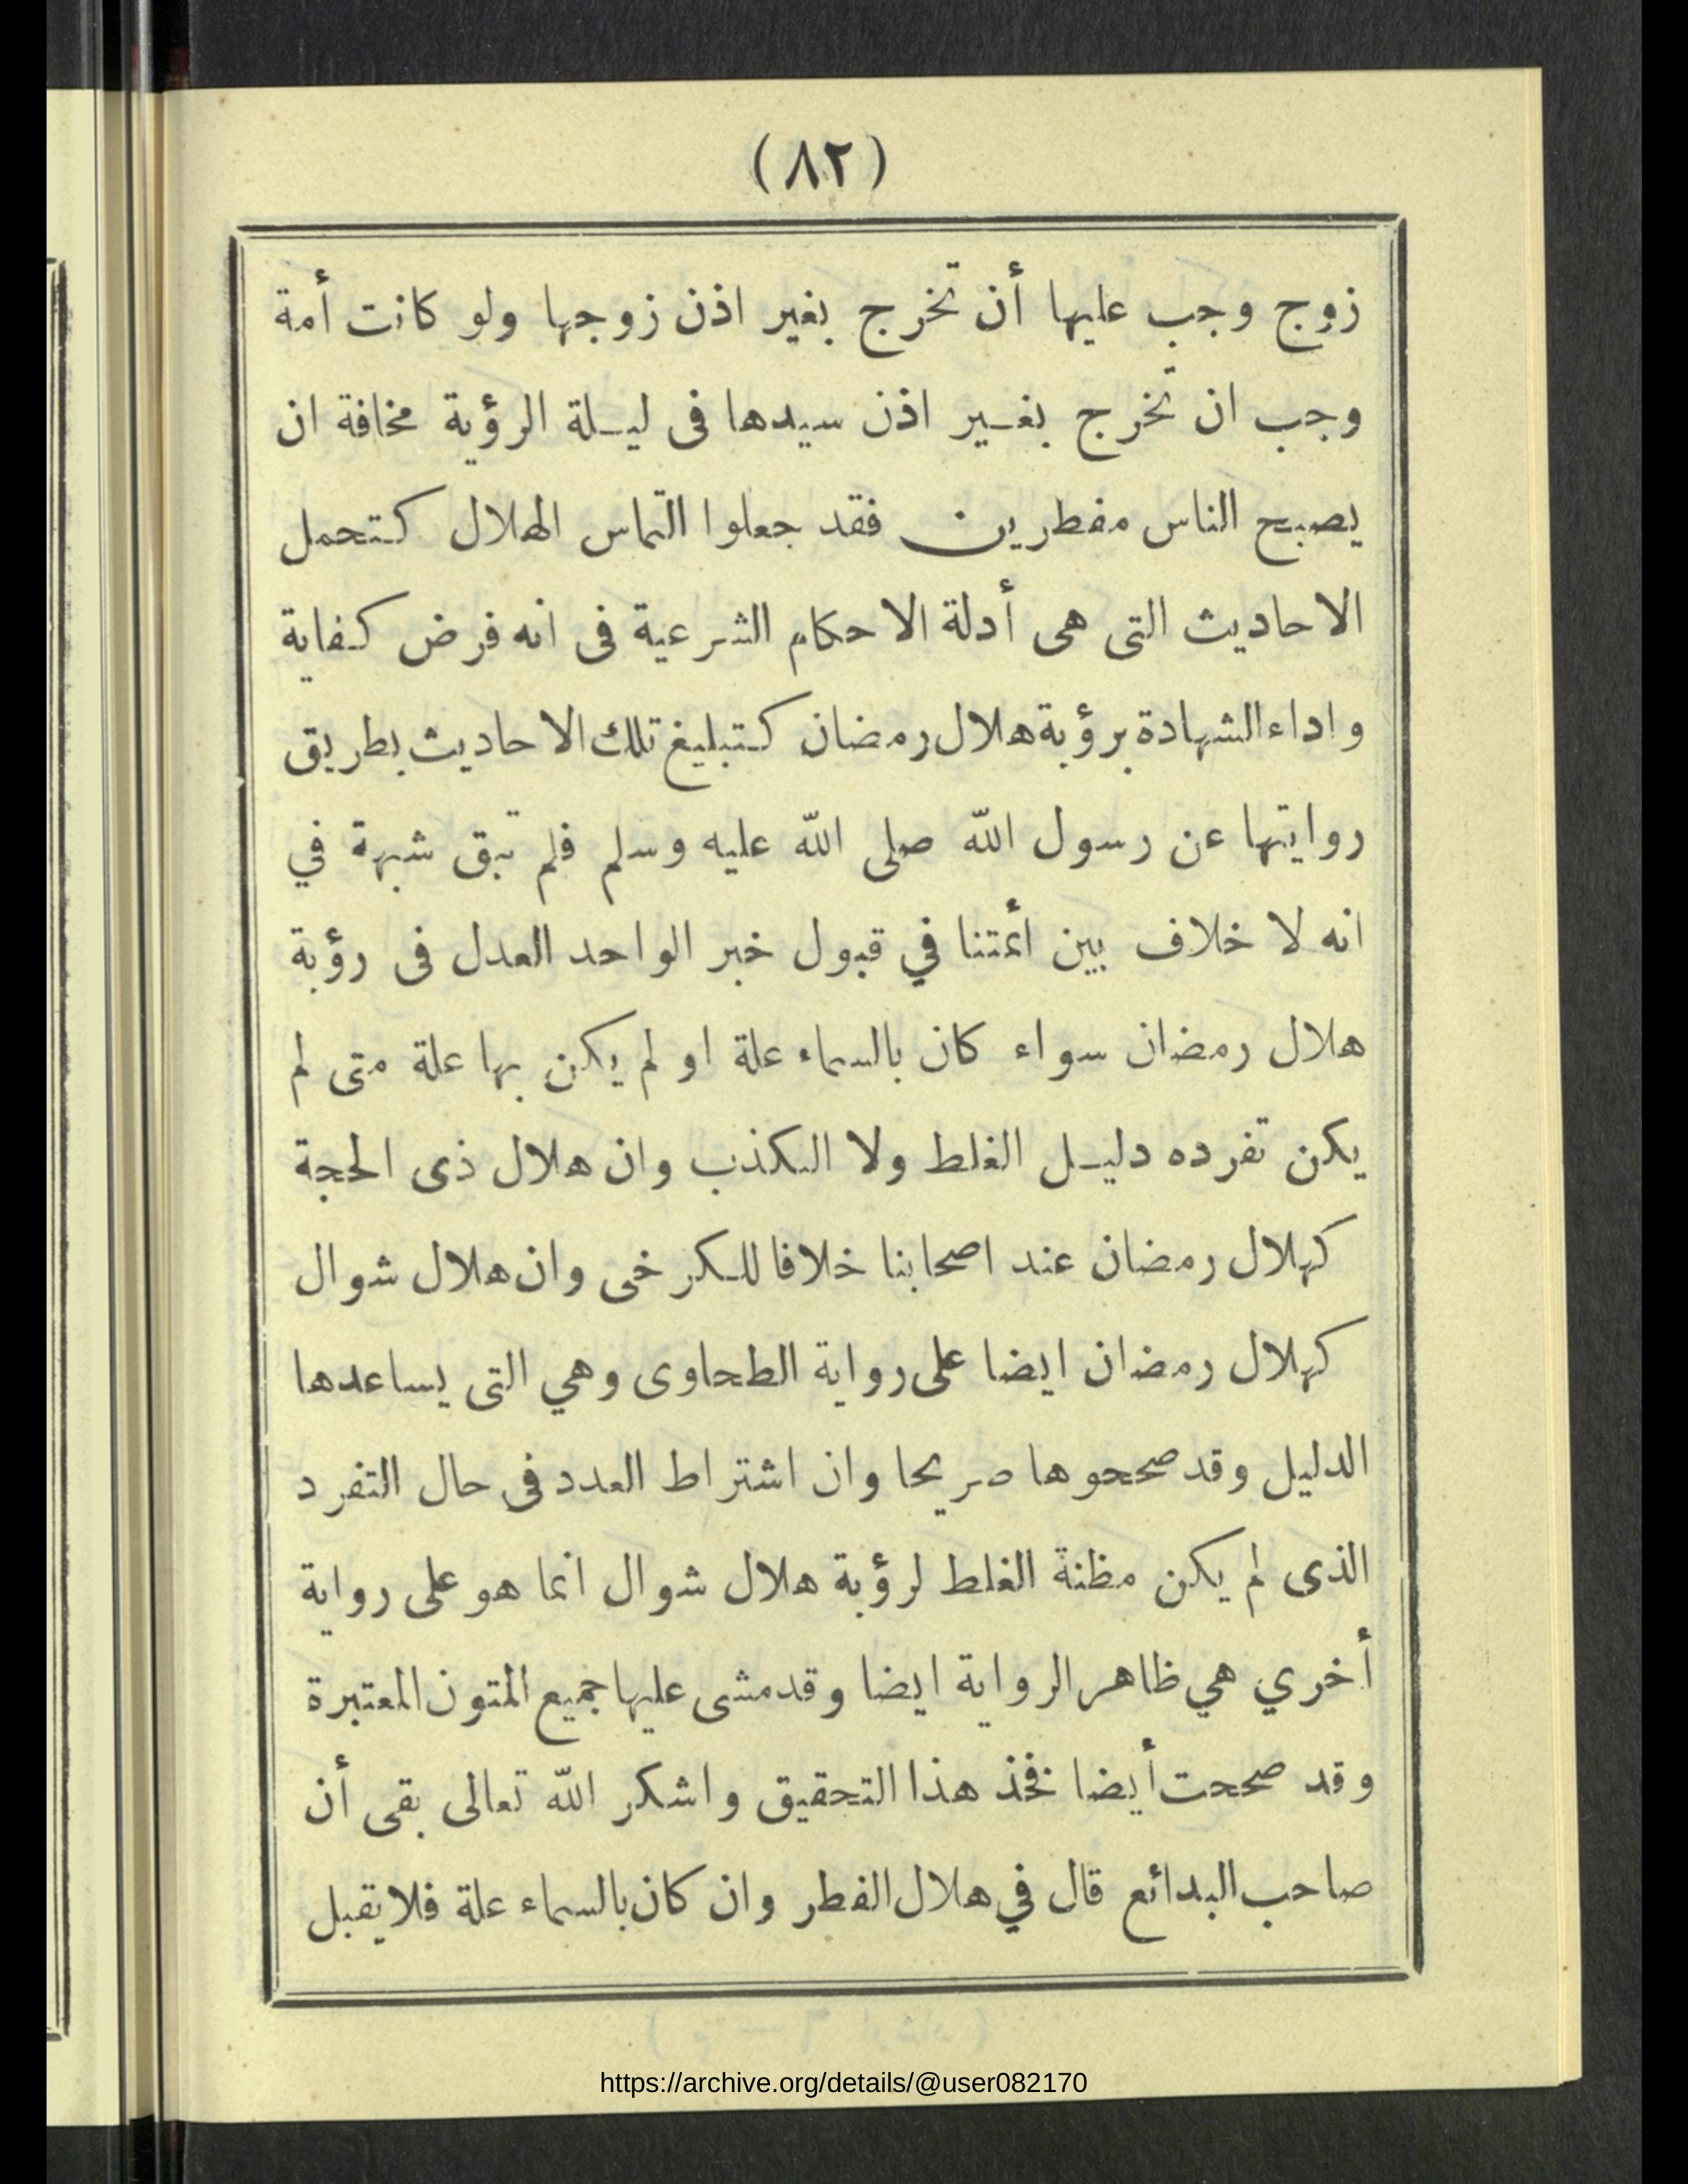 (٨٢)
زوج وجب عليها أن تخرج بغير اذن زوجها ولو كانت أمة
وجب ان تخرج بغير اذن سيدها فى ليلة الرؤية مخافة ان
يصبح الناس مفطرين فقد جعلوا التماس الهلال كتحمل
الاحاديث التى هى أدلة الاحكام الشرعية فى انه فرض كفاية
واداء الشهادة برؤية هلال رمضان كتبليغ تلك الاحاديث بطريق
روايتها عن رسول الله صلى الله عليه وسلم فلم تبق شبهة في
انه لا خلاف بين أئمتنا في قبول خبر الواحد العدل فى رؤية
هلال رمضان سواء كان بالسماء علة او لم يكن بها علة متى لم
يكن تفرده دليل الغلط ولا الكذب وان هلال ذى الحجة
كهلال رمضان عند اصحابنا خلافا للكرخى وان هلال شوال
كهلال رمضان ايضا على رواية الطحاوى وهي التى يساعدها
الدليل وقد صححوها صريحا وان اشتراط العدد فى حال التفرد
الذى لم يكن مظنة الغلط لرؤية هلال شوال انما هو على رواية
أخري هي ظاهر الرواية ايضا وقد مشى عليها جميع المتون المعتبرة
وقد صححت أيضا فخذ هذا التحقيق واشكر الله تعالى بقى أن
صاحب البدائع قال في هلال الفطر وان كان بالسماء علة فلا يقبل
https://archive.org/details/@user082170